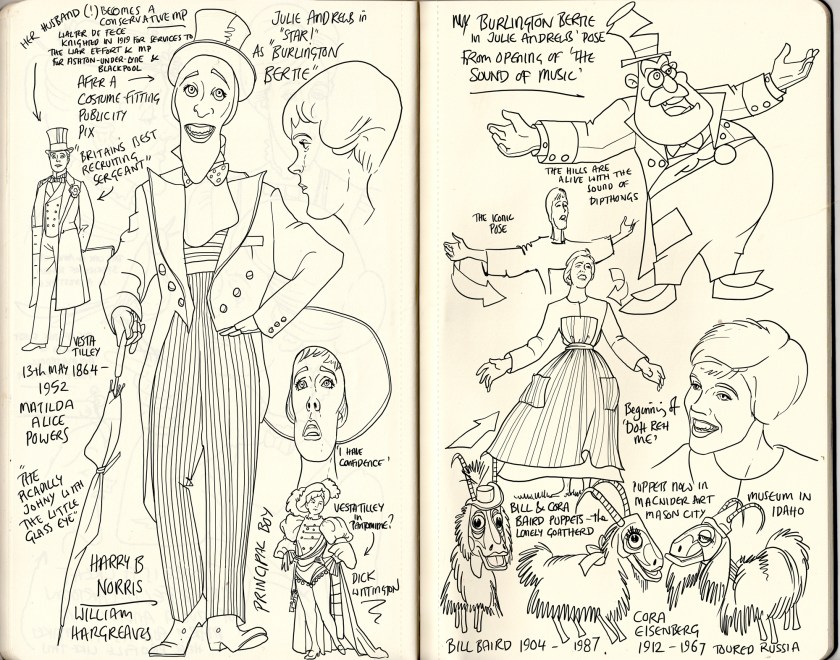 HER HUSBAND (!) BECOMES A
CONSERVATIVE MP
WALTER DE FECE
KNIGHTED IN 1919 FOR SERVICES TO
THE WAR EFFORT & MP
FOR ASHTON-UNDER-LYNE &
BLACKPOOL
AFTER A
COSTUME-FITTING
PUBLICITY
PIX
"BRITAIN'S BEST
RECRUITING
SERGEANT"
VESTA
TILLEY
13TH MAY 1864-
1952
MATILDA
ALICE
POWERS
"THE
PICADILLY
JOHNY WITH
THE LITTLE
GLASS EYE"
HARRY B
NORRIS
WILLIAM
HARGREAVES
JULIE ANDREWS in
"STAR!"
AS "BURLINGTON
BERTIE"
'I HAVE
CONFIDENCE'
PRINCIPAL BOY
VESTA TILLEY
in
PANTOMIME?
DICK
WHITTINGTON
MY BURLINGTON BERTIE
in JULIE ANDREWS' POSE
FROM OPENING OF 'THE
SOUND OF MUSIC'
THE HILLS ARE
ALIVE WITH THE
SOUND OF
DIPTHONGS
THE ICONIC
POSE
Beginning of
'DOH REH
ME'
BILL & CORA
BAIRD PUPPETS - the
LONELY GOATHERD
PUPPETS NOW in
MACNIDER ART
MASON CITY
MUSEUM IN
IDAHO
BILL BAIRD 1904 - 1987.
CORA
EISENBERG
1912 - 1967 TOURED RUSSIA